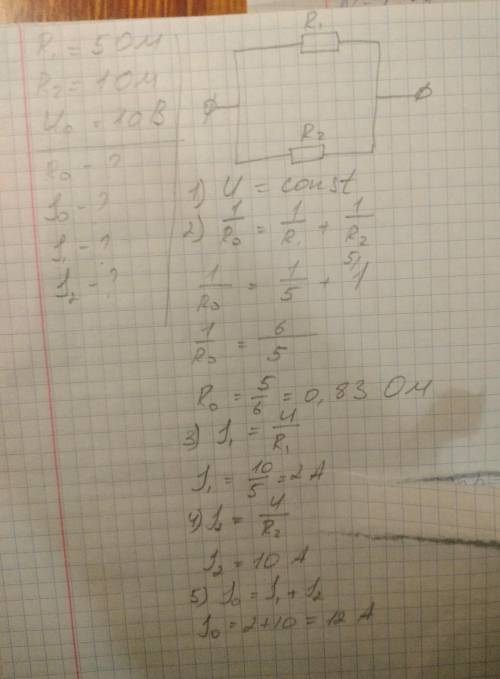 R₁ = 5 Ом
R₂ = 1 Ом
U₀ = 10 В
R₀ - ?
J₀ - ?
J₁ - ?
J₂ - ?
R₁
R₂
1) U = const
2) 1/R₀ = 1/R₁ + 1/R₂
1/R₀ = 1/5 + 5/1
1/R₀ = 6/5
R₀ = 5/6 = 0,83 Ом
3) J₁ = U/R₁
J₁ = 10/5 = 2 А
4) J₂ = U/R₂
J₂ = 10 А
5) J₀ = J₁ + J₂
J₀ = 2+10 = 12 А